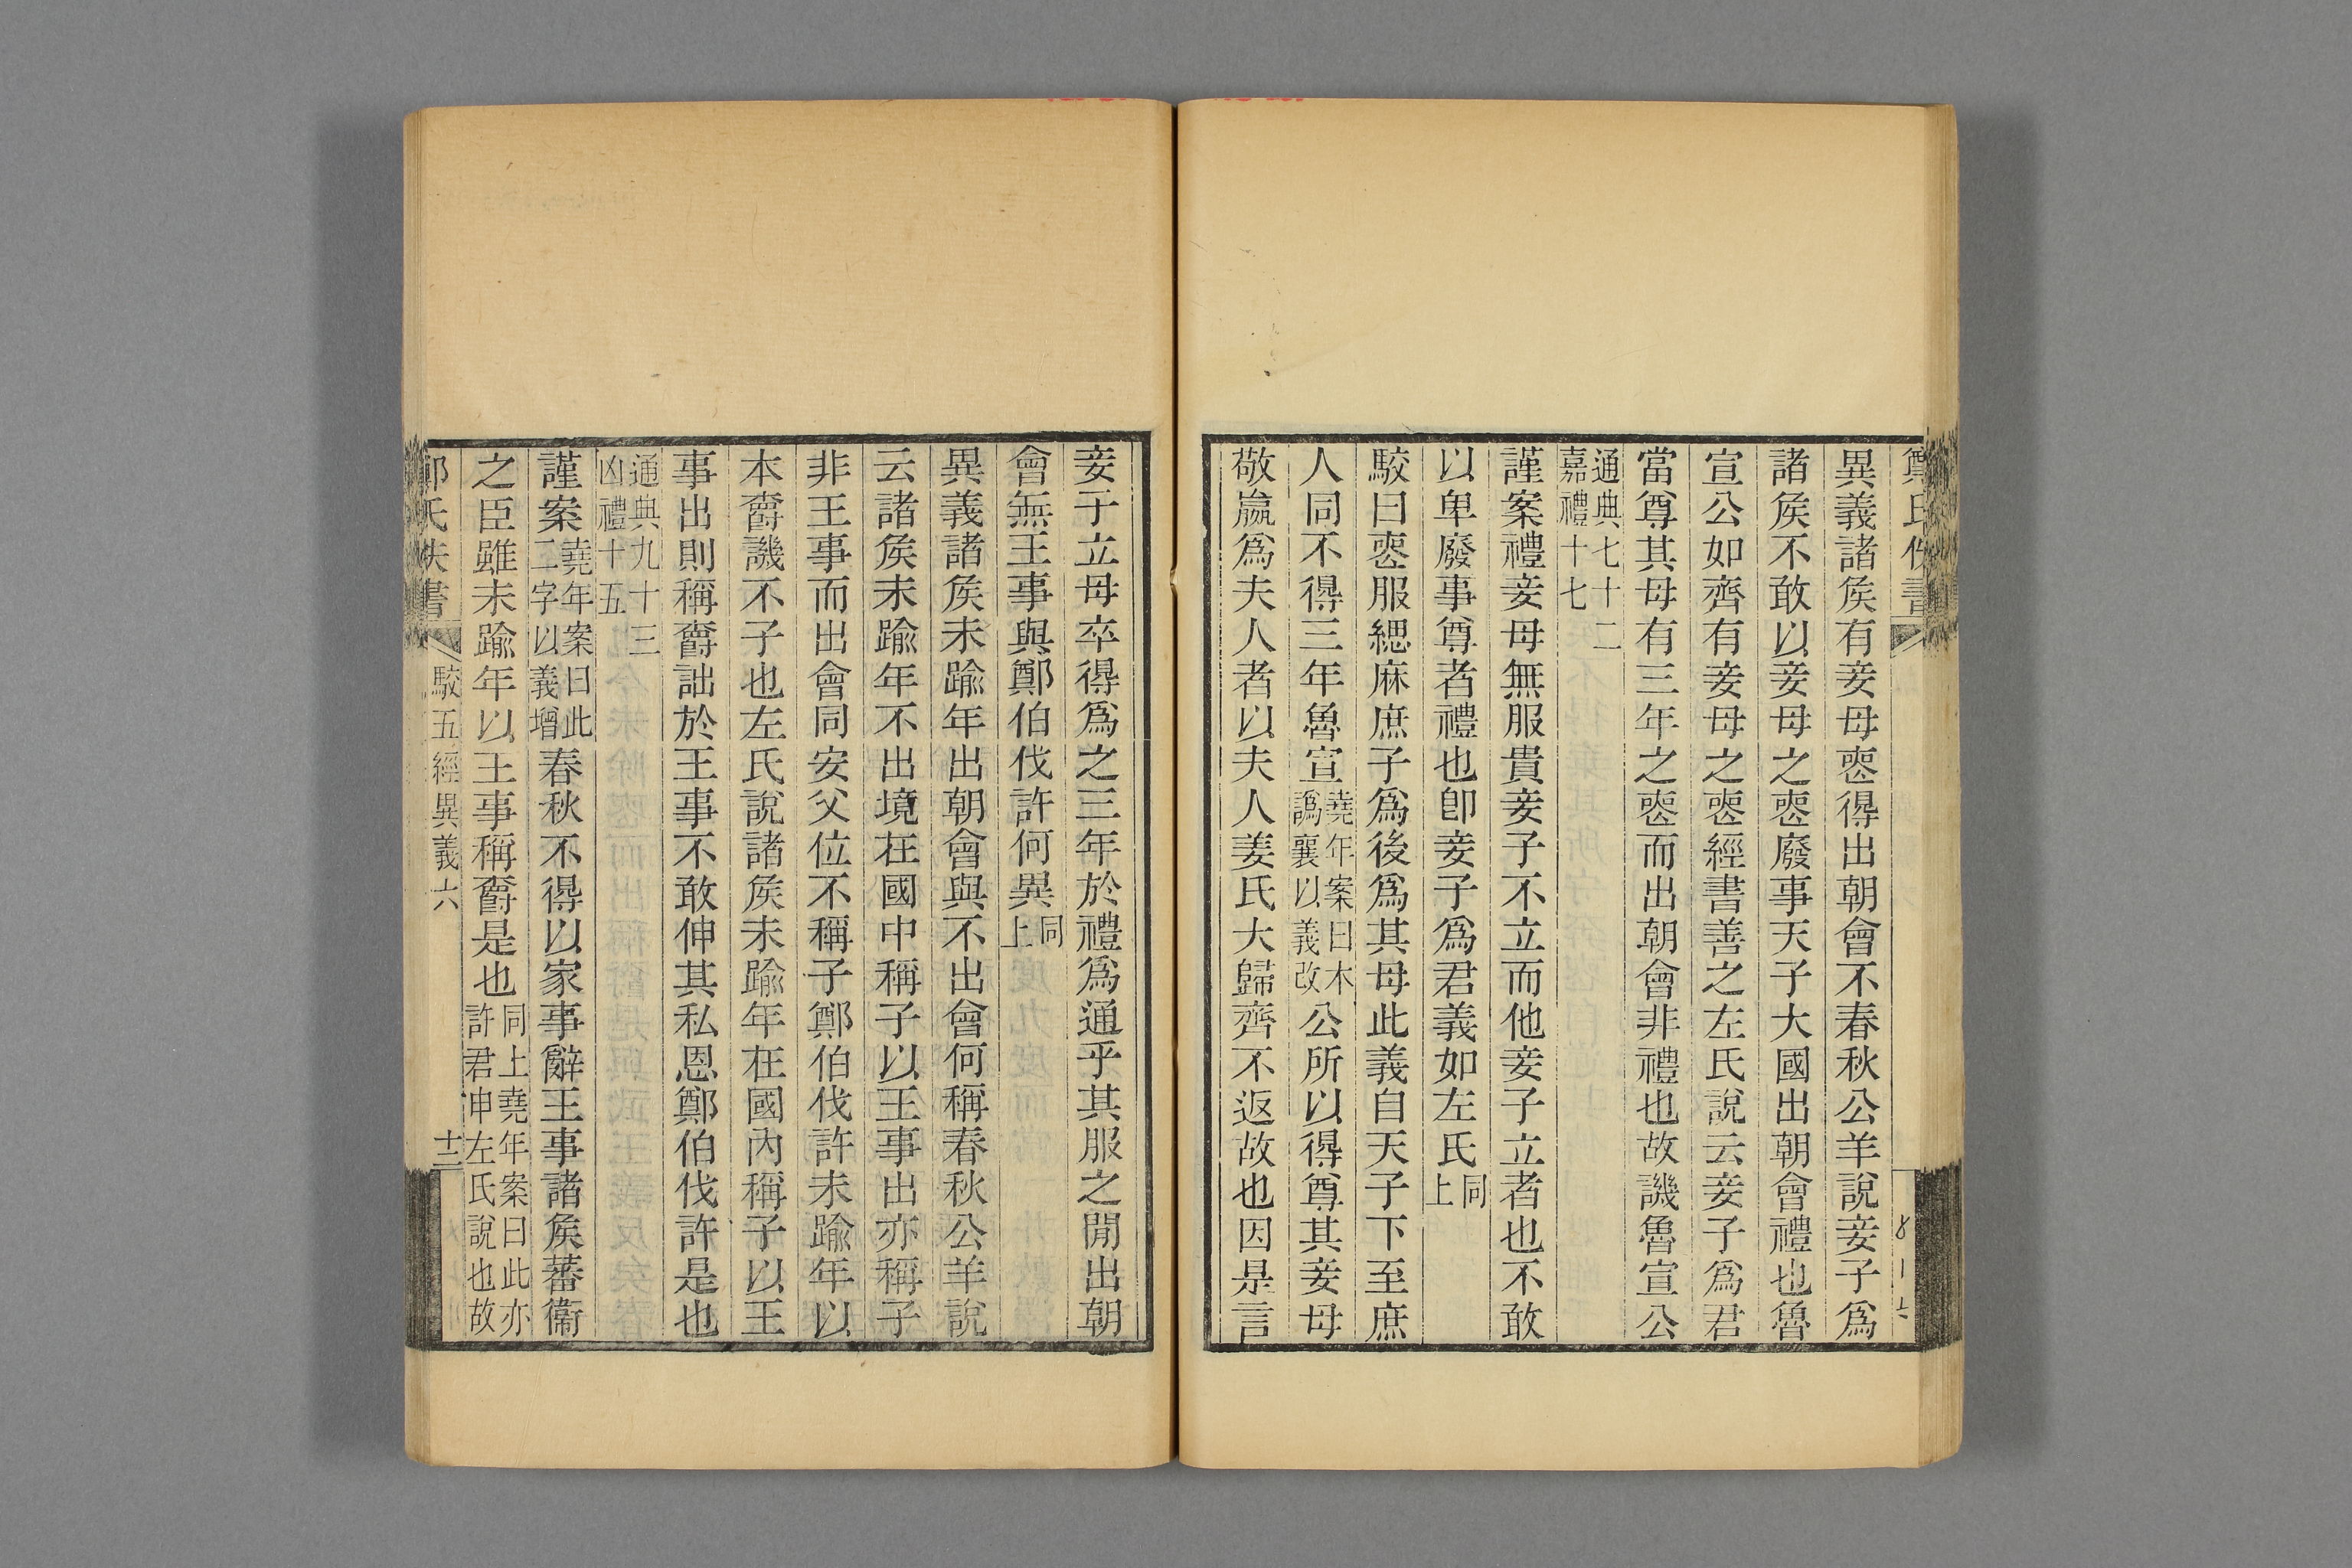 異義諸矦有妾母喪得出朝會不春秋公羊說妾子爲
諸矦不敢以妾母之喪廢事天子大國出朝會禮也魯
宣公如齊有妾母之喪經書善之左氏說云妾子爲君
當尊其母有三年之喪而出朝會非禮也故譏魯宣公
通典七十二
嘉禮十七
謹案禮妾母無服貴妾子不立而他妾子立者也不敢
以卑廢事尊者禮也卽妾子爲君義如左氏同上
駮曰喪服緦麻庶子爲後爲其母此義自天子下至庶
人同不得三年魯宣堯年案曰本譌襄以義改公所以得尊其妾母
敬嬴爲夫人者以夫人姜氏大歸齊不返故也因是言
妾子立母卒得爲之三年於禮爲通乎其服之閒出朝
會無王事與鄭伯伐許何異同上
異義諸矦未踰年出朝會與不出會何稱春秋公羊說
云諸矦未踰年不出境在國中稱子以王事出亦稱子
非王事而出會同安父位不稱子鄭伯伐許未踰年以
本爵譏不子也左氏說諸矦未踰年在國內稱子以王
事出則稱爵詘於王事不敢伸其私恩鄭伯伐許是也
通典九十三
凶禮十五
謹案堯年案曰此二字以義增春秋不得以家事辭王事諸矦蕃衞
之臣雖未踰年以王事稱爵是也同上堯年案曰此亦許君申左氏說也故
駮五經異義六
十三